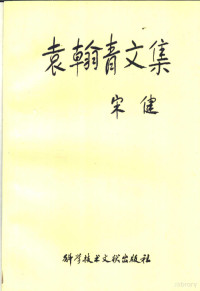 袁翰青文集
宋健
科学技术文献出版社